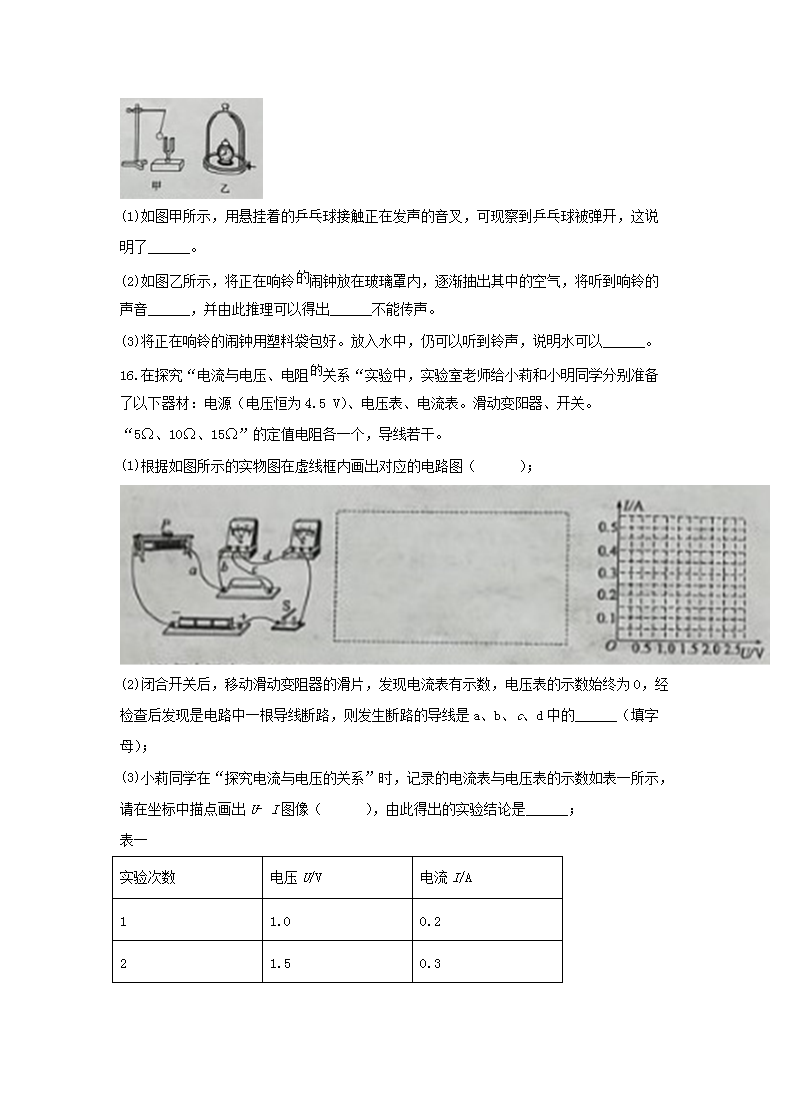 甲 乙
(1)如图甲所示，用悬挂着的乒乓球接触正在发声的音叉，可现察到乒乓球被弹开，这说
明了______。
(2)如图乙所示，将正在响铃的闹钟放在玻璃罩内，逐渐抽出其中的空气，将听到响铃的
声音______，并由此推理可以得出______不能传声。
(3)将正在响铃的闹钟用塑料袋包好。放入水中，仍可以听到铃声，说明水可以______。
16.在探究“电流与电压、电阻的关系“实验中，实验室老师给小莉和小明同学分别准备
了以下器材：电源（电压恒为4.5 V）、电压表、电流表。滑动变阳器、开关。
“5Ω、10Ω、15Ω”的定值电阻各一个，导线若干。
(1)根据如图所示的实物图在虚线框内画出对应的电路图（      ）；
P a b c d S − +
I/A
0.5
0.4
0.3
0.2
0.1
O 0.5 1.0 1.5 2.0 2.5 U/V
(2)闭合开关后，移动滑动变阻器的滑片，发现电流表有示数，电压表的示数始终为0，经
检查后发现是电路中一根导线断路，则发生断路的导线是a、b、c、d中的______（填字
母）；
(3)小莉同学在“探究电流与电压的关系”时，记录的电流表与电压表的示数如表一所示，
请在坐标中描点画出U- I图像（      ），由此得出的实验结论是______；
表一
实验次数 电压U/V 电流I/A
1 1.0 0.2
2 1.5 0.3